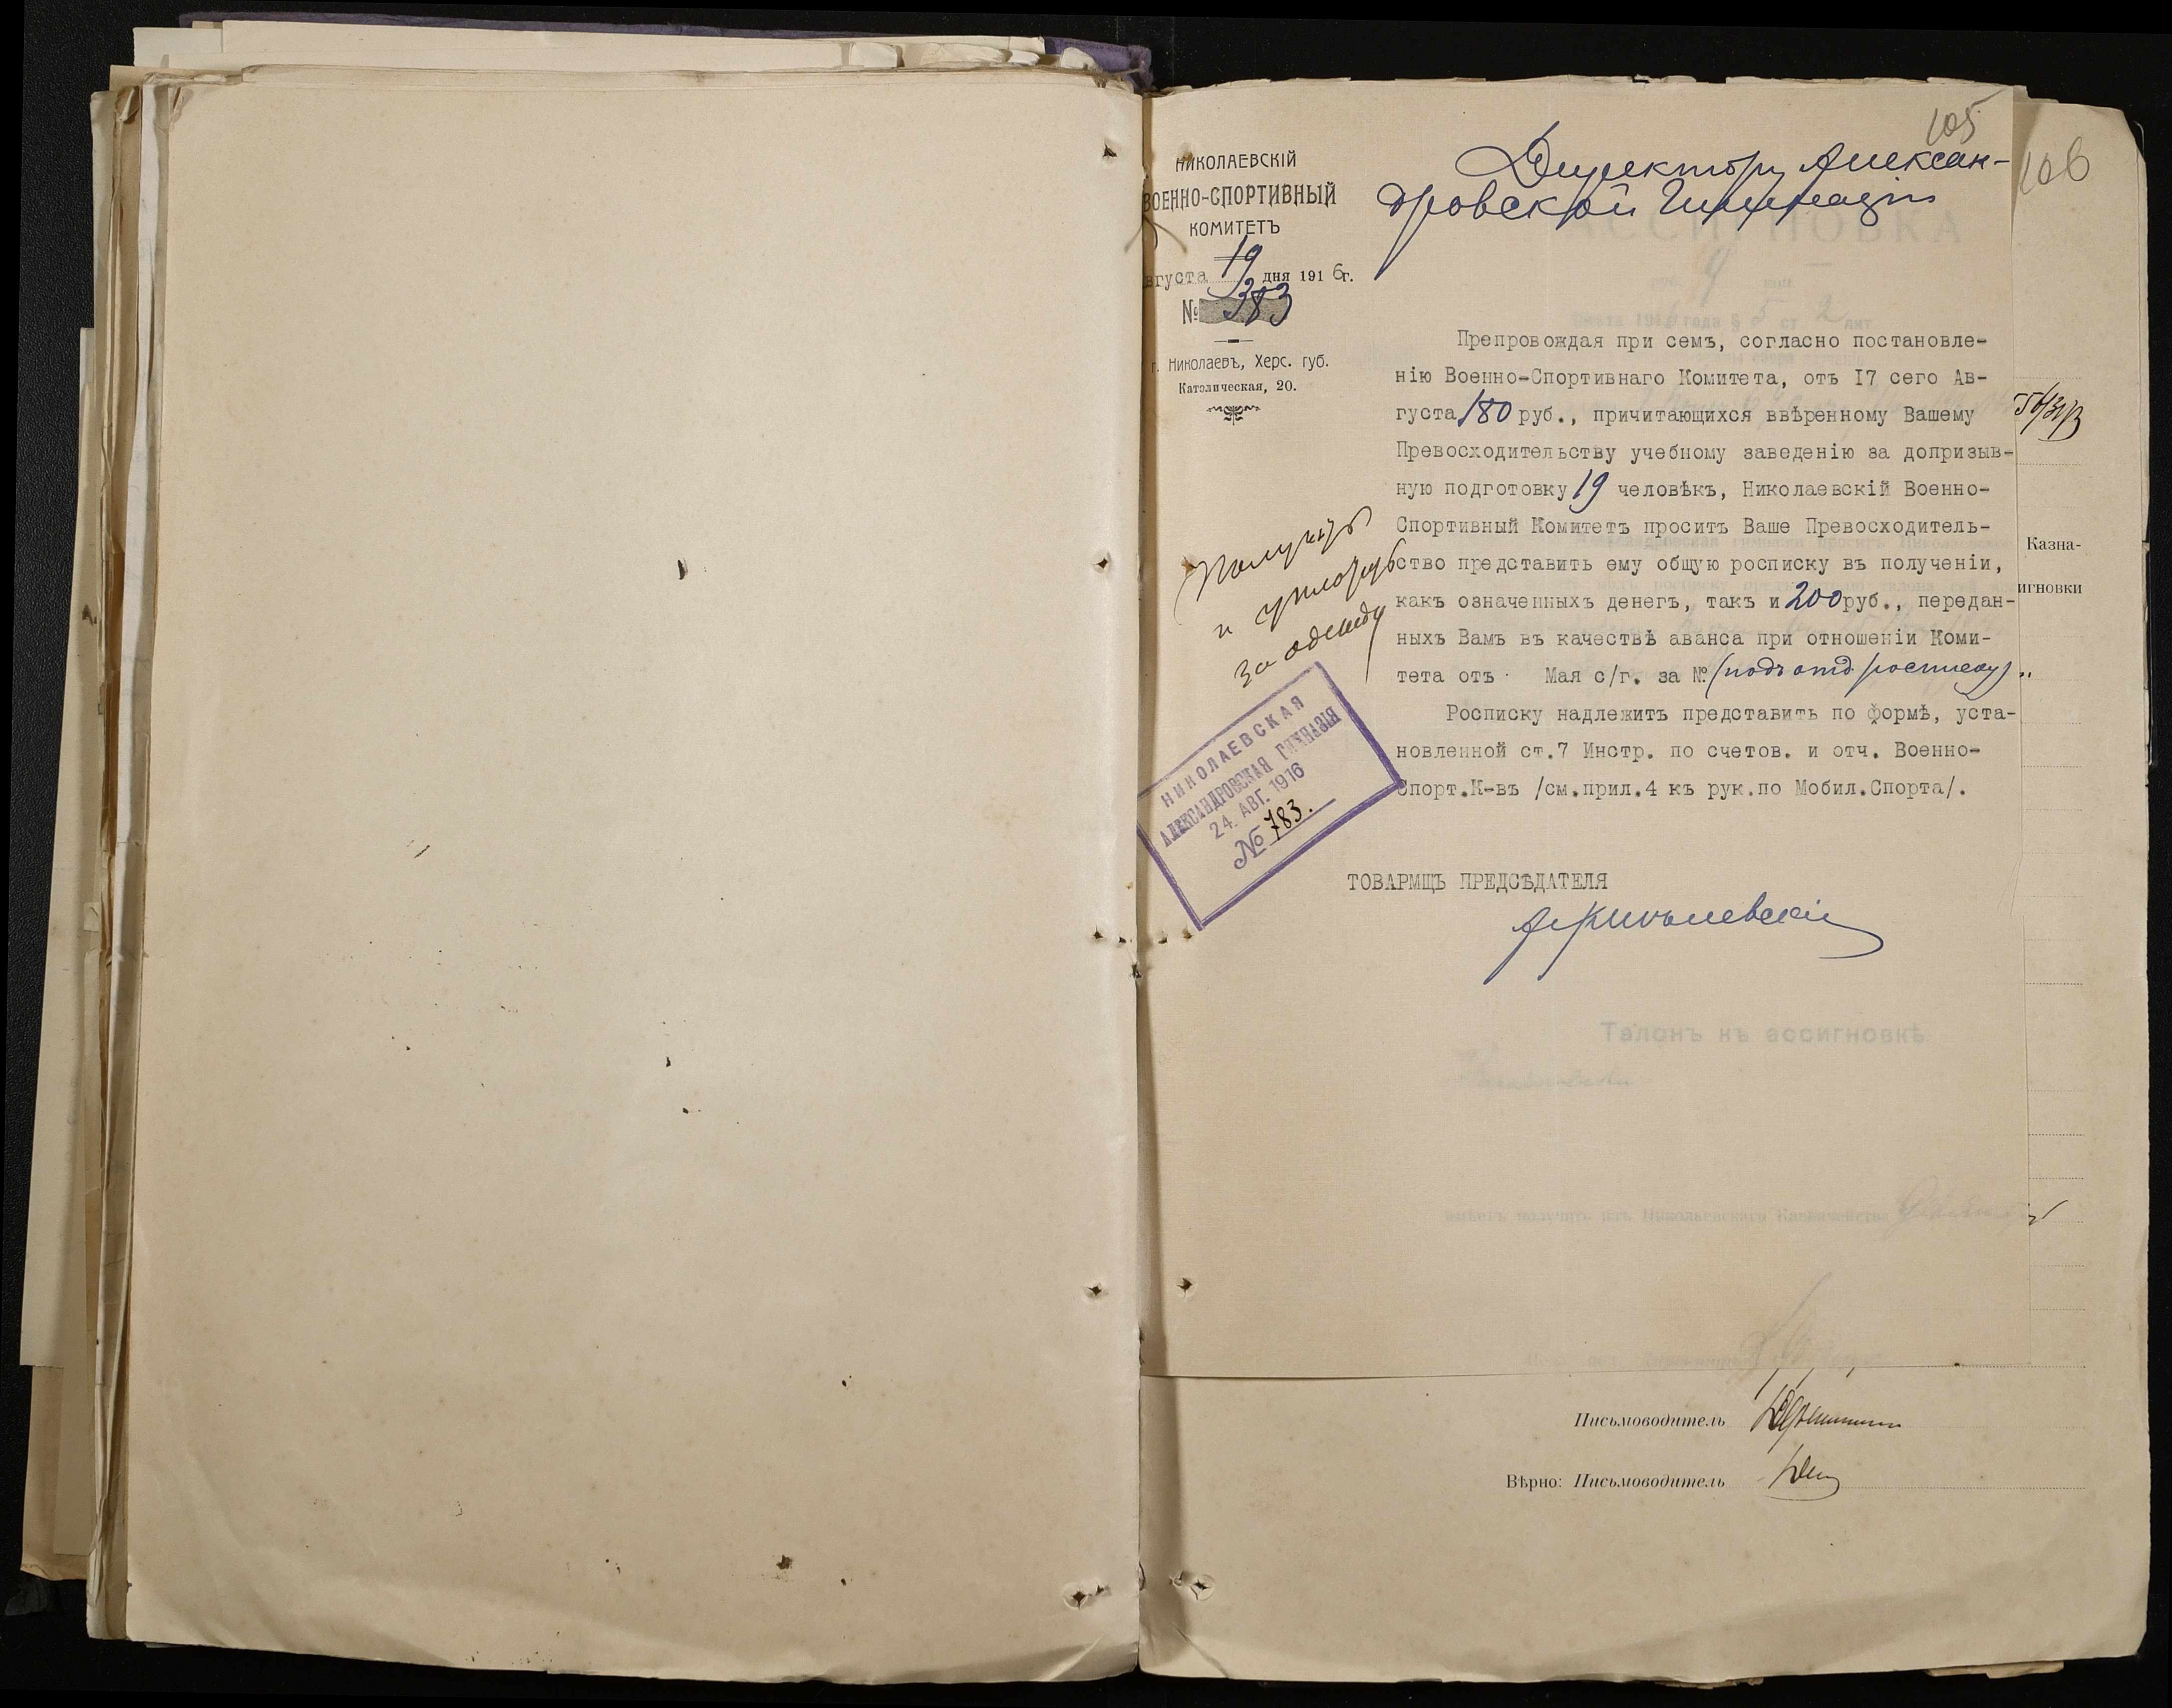 105
106
НИКОЛАЕВСКІЙ
ВОЕННО-СПОРТИВНЫЙ
КОМИТЕТЪ
вгуста 19 дня 1916г.
№ 383
г. Николаевъ, Херс. губ.
Католическая, 20.
Директору Алексан-
дровской Гимназіи
Препровождая при семъ, согласно постановле-
нію Военно-Спортивнаго Комитета, отъ 17 сего Ав-
густа 180 руб., причитающихся ввѣренному Вашему
Превосходительству учебному заведенію за допризыв-
ную подготовку 19 человѣкъ, Николаевскій Военно-
Спортивный Комитетъ проситъ Ваше Превосходитель-
ство представить ему общую росписку въ полученіи,
какъ означенныхъ денегъ, такъ и 200 руб., передан-
ныхъ Вамъ въ качествѣ аванса при отношеніи Коми-
тета отъ Мая с/г. за № (подъ отд. росписку).
Росписку надлежитъ представить по формѣ, уста-
новленной ст.7 Инстр. по счетов. и отч. Военно-
Спорт.К-въ /см.прил.4 къ рук.по Мобил.Спорта/.
и
за одежду
НИКОЛАЕВСКАЯ
АЛЕКСАНДРОВСКАЯ ГИМНАЗІЯ
24. АВГ. 1916
№ 783.
ТОВАРМЩЪ ПРЕДСѢДАТЕЛЯ
Казна-
игновки
Талонъ къ ассигновкѣ
Письмоводитель
Вѣрно: Письмоводитель